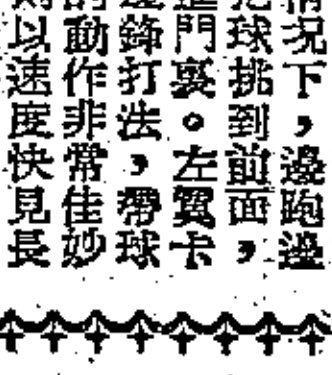 情况下，邊跑邊
把球挑到前面，
進門裏。左翼卡
邊鋒打法，帶球
的動作非常佳妙
則以速度快見長